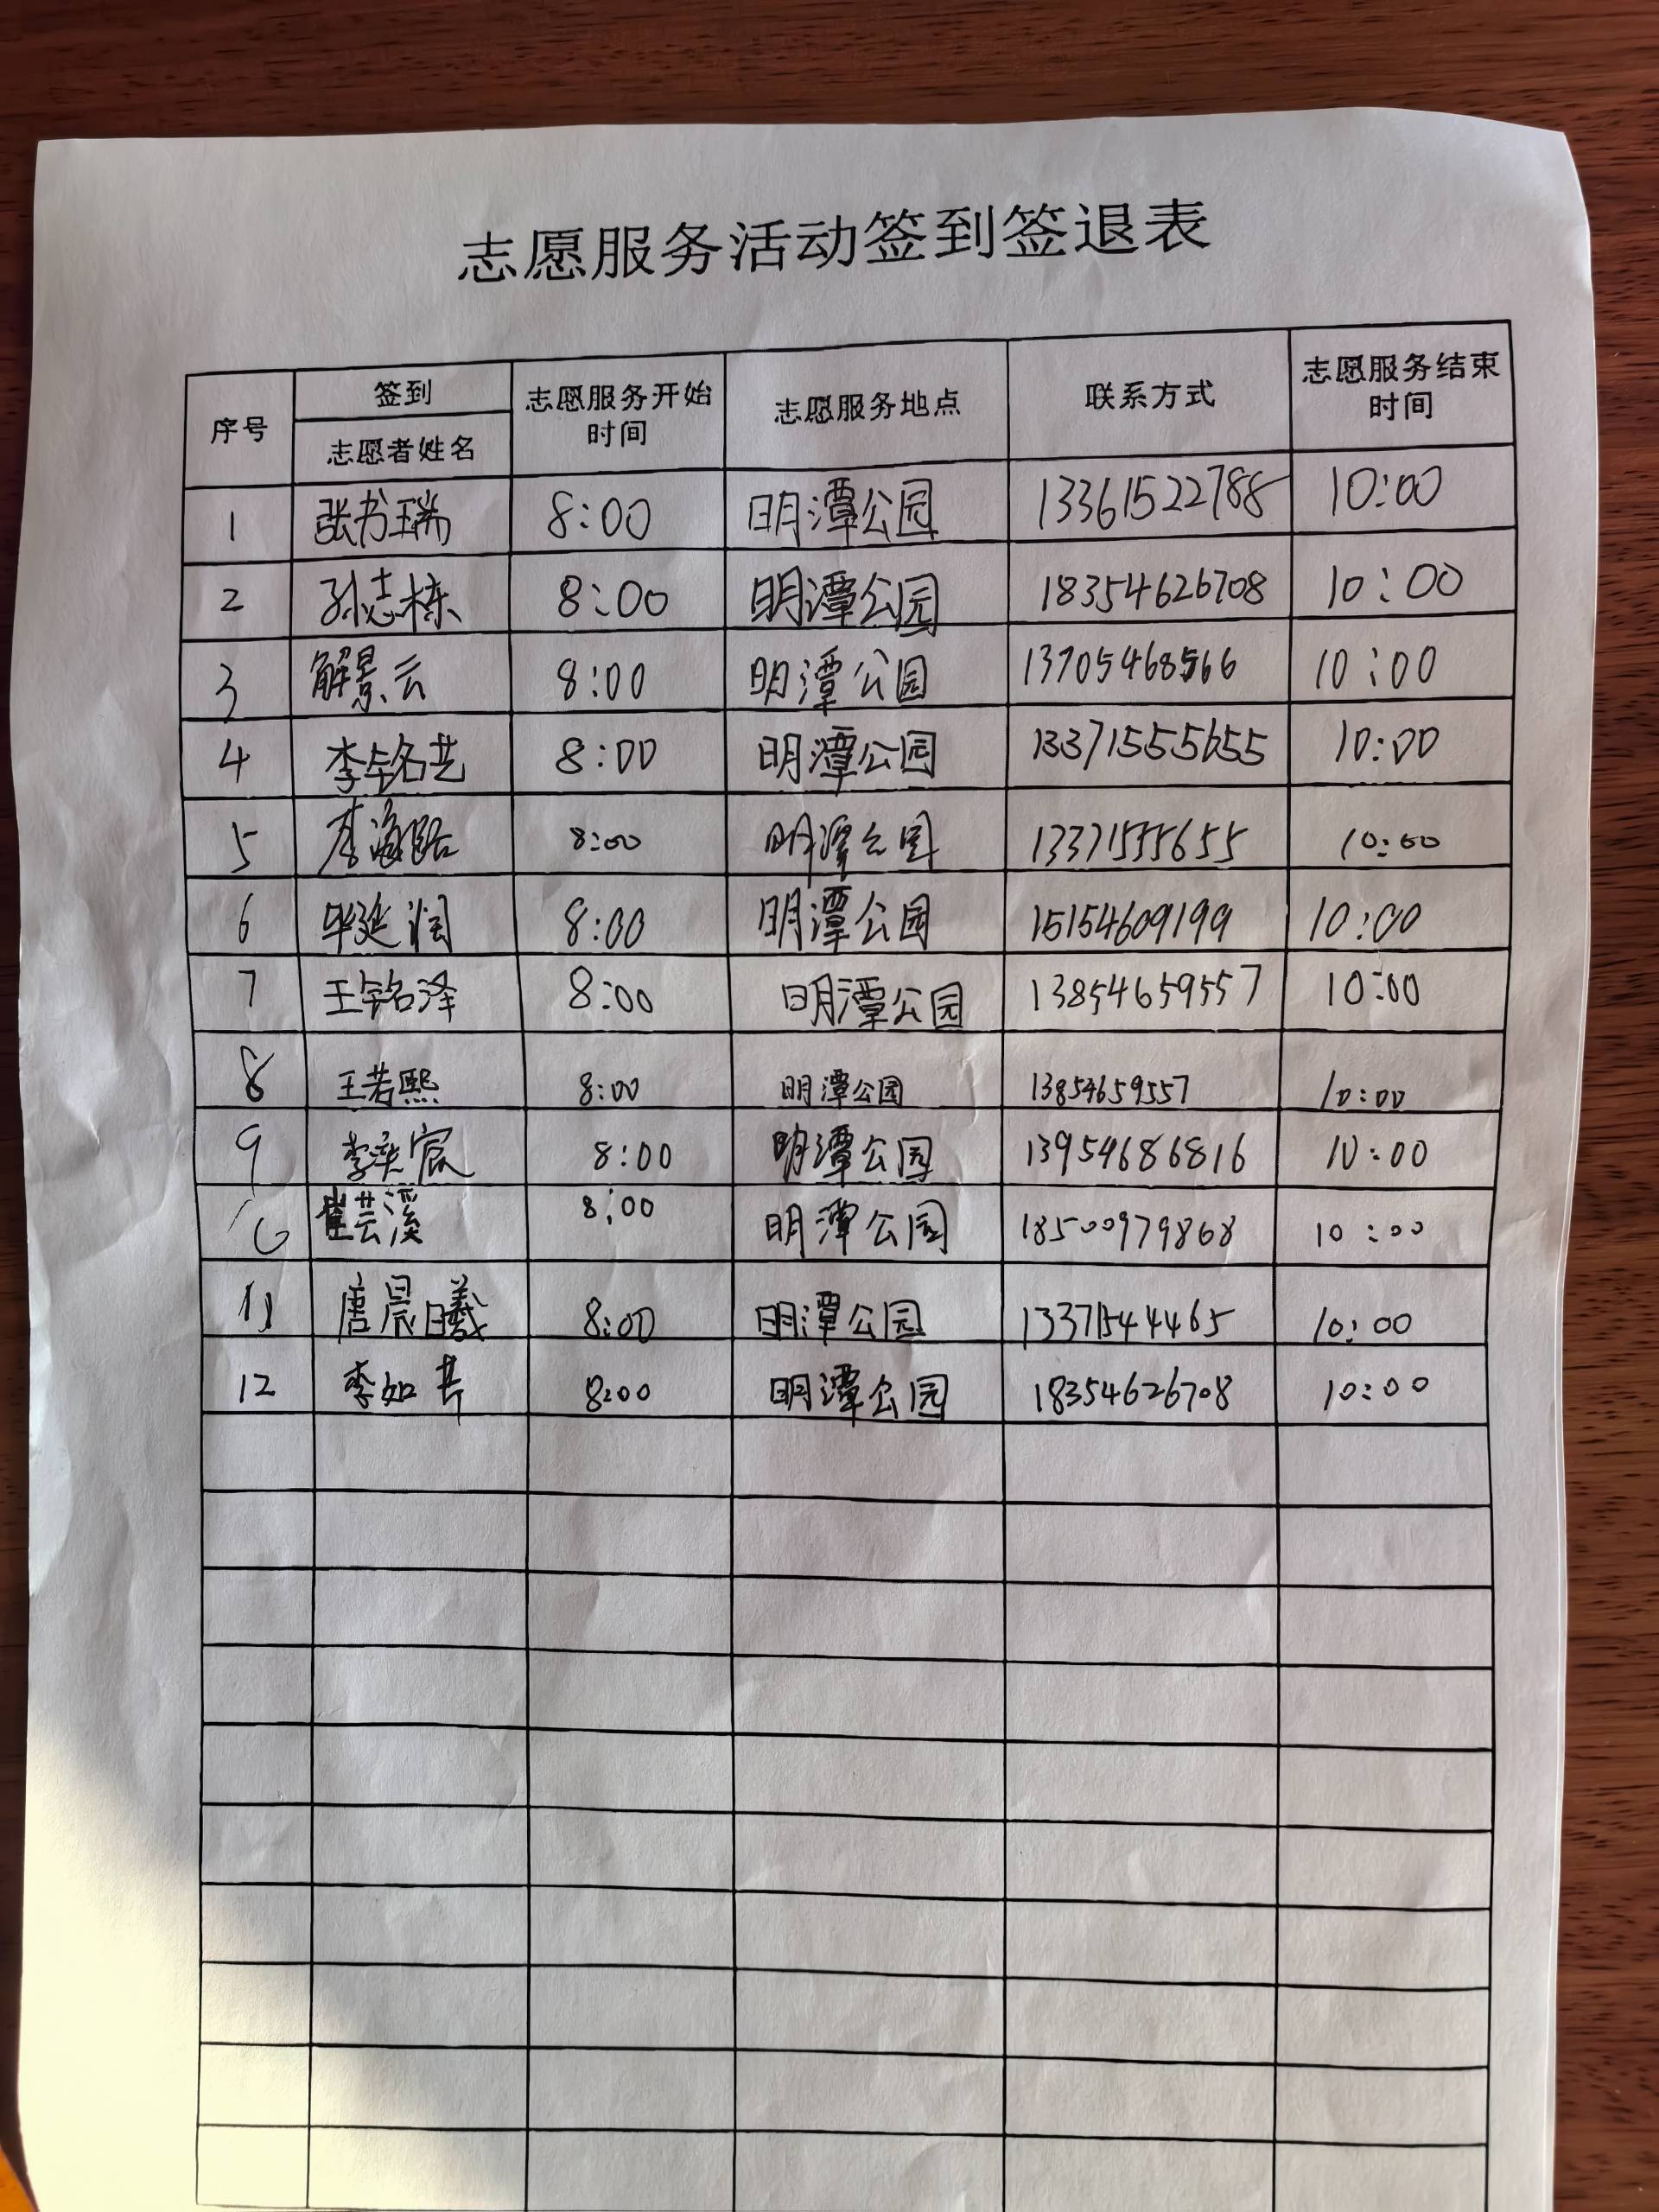 志愿服务活动签到签退表
序号 签到 志愿者姓名 志愿服务开始时间 志愿服务地点 联系方式 志愿服务结束时间
1 张书瑞 8:00 明潭公园 13361522788 10:00
2 孙志栋 8:00 明潭公园 18354626708 10:00
3 解景云 8:00 明潭公园 13705468566 10:00
4 李铭艺 8:00 明潭公园 13371555655 10:00
5 李海 8:00 明潭公园 13371555655 10:00
6 毕延润 8:00 明潭公园 15154609199 10:00
7 王铭泽 8:00 明潭公园 13854659557 10:00
8 王若熙 8:00 明潭公园 13854659557 10:00
9 李奕宸 8:00 明潭公园 13954686816 10:00
10 崔芸溪 8:00 明潭公园 18500979868 10:00
11 唐晨曦 8:00 明潭公园 13371544465 10:00
12 李如 8:00 明潭公园 18354626708 10:00